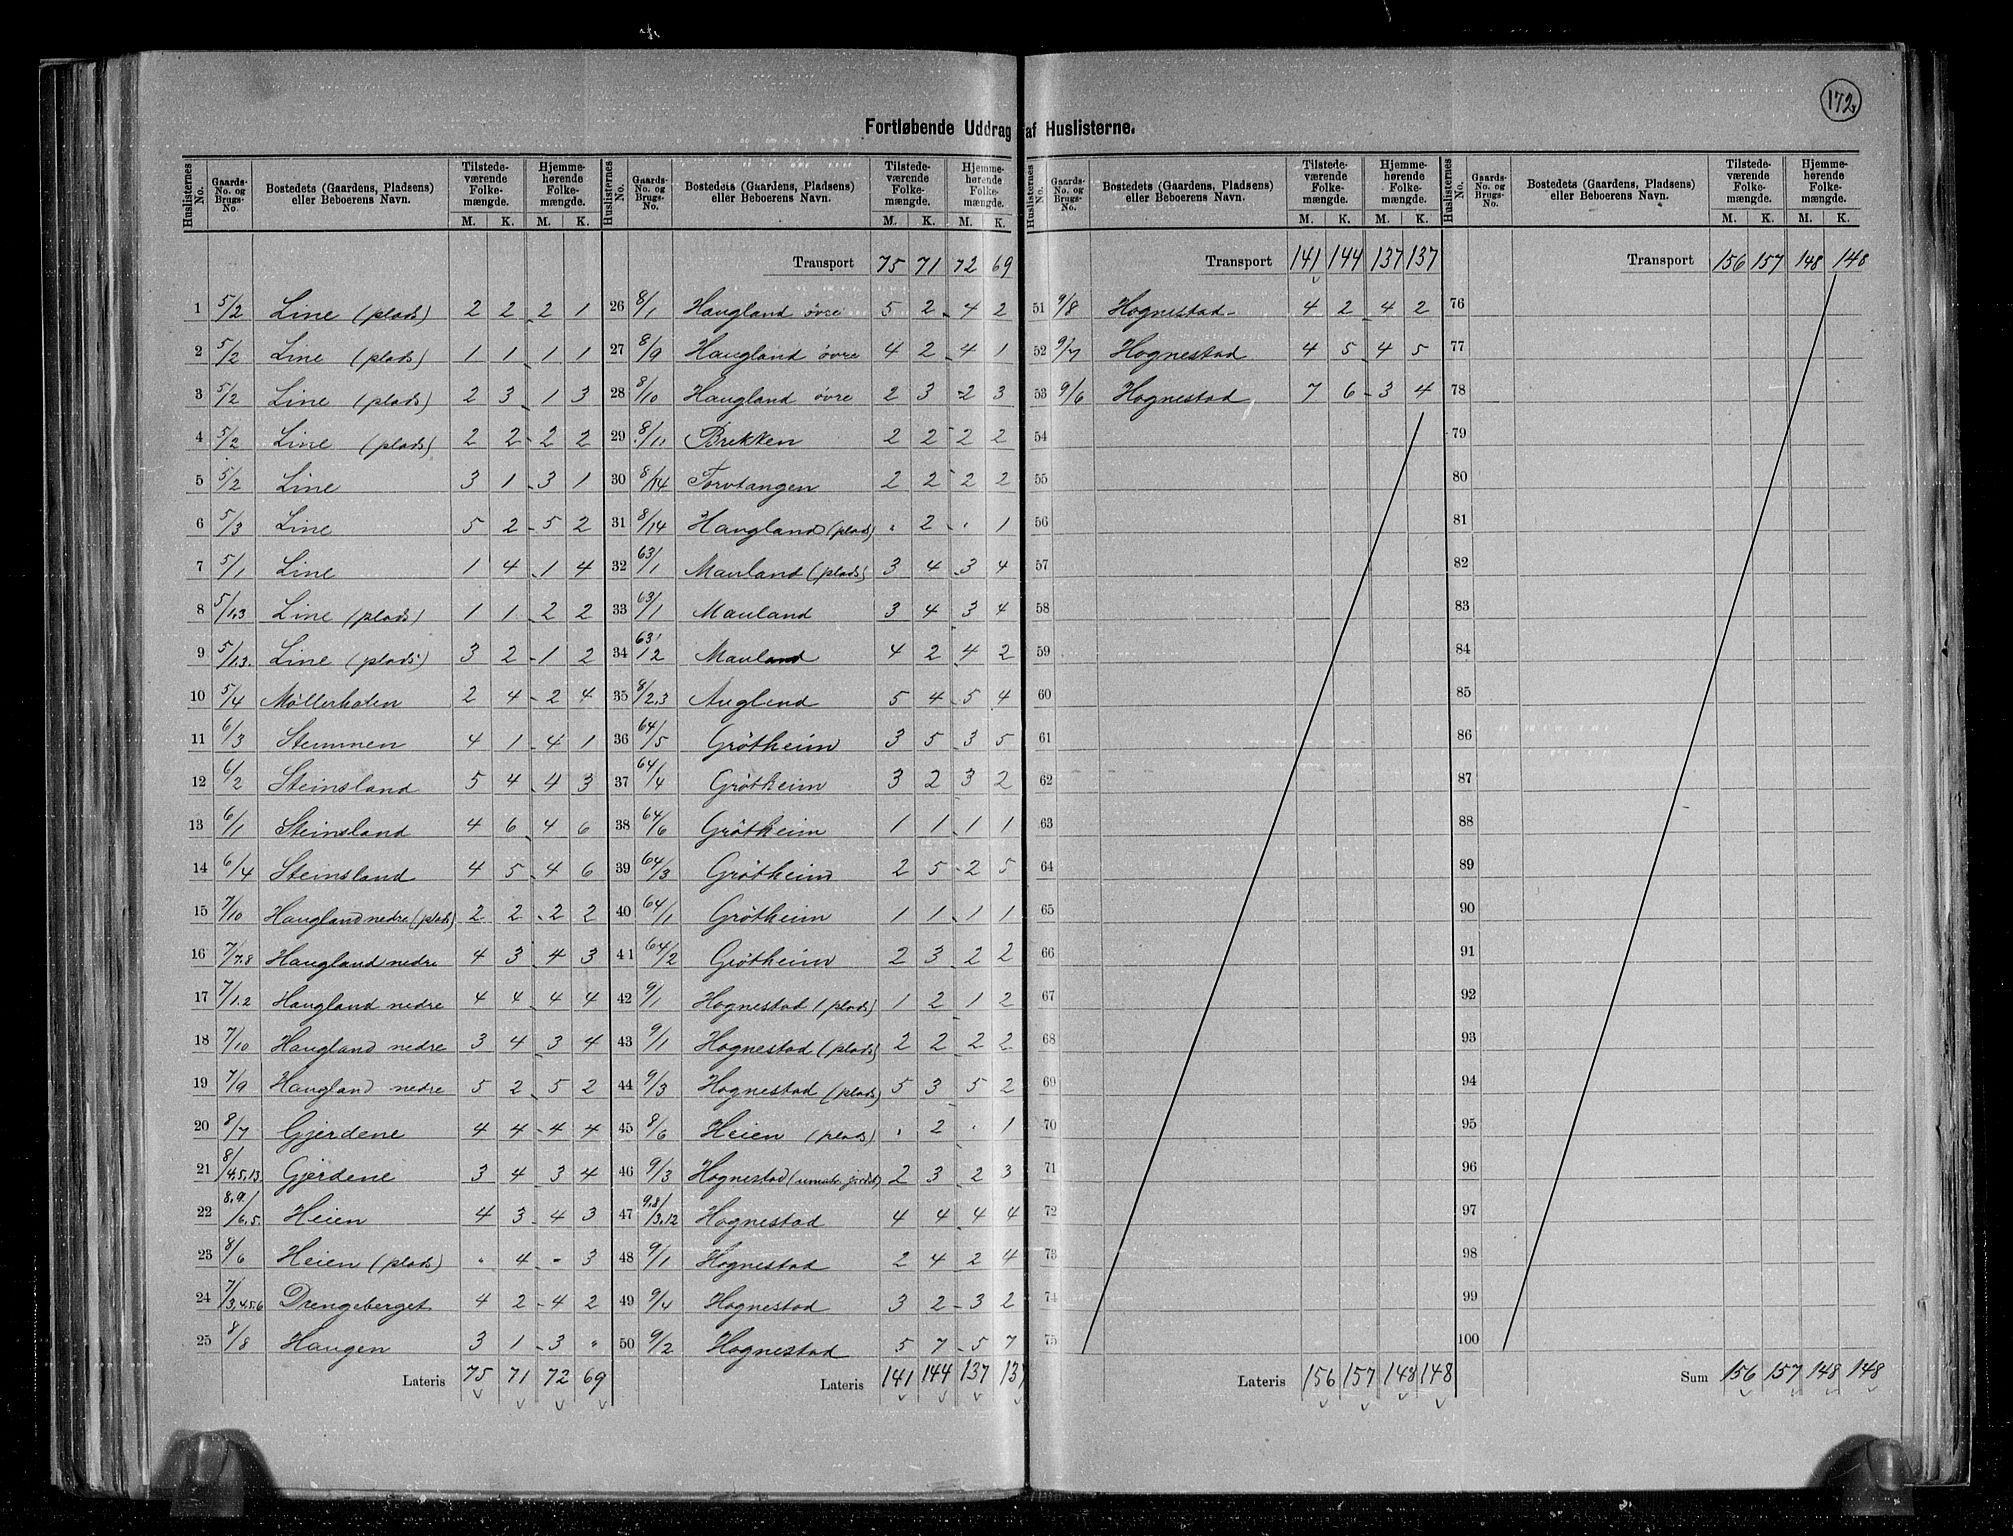 172.
Fortløbende Uddrag af Huslisterne.
Huslisternes No. | Gaards-No. og Brugs-No. | Bostedets (Gaardens, Pladsens) eller Beboerens Navn. | Tilstedeværende Folkemængde. M. K. | Hjemmehørende Folkemængde. M. K.
1 5/2 Line (plads) 2 2 2 1
2 5/2 Line (plads) 1 1 1 1
3 5/2 Line (plads) 2 3 1 3
4 5/2 Line (plads) 2 2 2 2
5 5/2 Line 3 1 3 1
6 5/3 Line 5 2 5 2
7 5/1 Line 1 4 1 4
8 5/1.3 Line (plads) 1 1 2 2
9 5/1.3. Line (plads) 3 2 1 2
10 5/4 Møllerholen 2 4 2 4
11 6/3 Stemmen 4 1 4 1
12 6/2 Steinsland 5 4 4 3
13 6/1 Steinsland 4 6 4 6
14 6/4 Steinsland 4 5 4 6
15 7/10 Haugland nedre (plads) 2 2 2 2
16 7/7.8 Haugland nedre 4 3 4 3
17 7/1.2 Haugland nedre 4 4 4 4
18 7/10 Haugland nedre 3 4 3 4
19 7/9 Haugland nedre 5 2 5 2
20 8/7 Gjerdene 4 4 4 4
21 8/4.5.13 Gjerdene 3 4 3 4
22 8.9./6.5. Heien 4 3 4 3
23 8/6 Heien (plads) - 4 - 3
24 7/3.4.5.6 Drengeberget 4 2 4 2
25 8/8 Haugen 3 1 3 "
Lateris 75 71 72 69
Huslisternes No. | Gaards-No. og Brugs-No. | Bostedets (Gaardens, Pladsens) eller Beboerens Navn. | Tilstedeværende Folkemængde. M. K. | Hjemmehørende Folkemængde. M. K.
Transport 75 71 72 69
26 8/1 Haugland øvre 5 2 4 2
27 8/9 Haugland øvre 4 2 4 1
28 8/10 Haugland øvre 2 3 2 3
29 8/11. Brekken 2 2 2 2
30 8/14 Torvtangen 2 2 2 2
31 8/14 Haugland (plads) . 2 . 1
32 63/1 Mauland (plads) 3 4 3 4
33 63/1 Mauland 3 4 3 4
34 63/2 Mauland 4 2 4 2
35 8/2.3 Auglend 5 4 5 4
36 64/5 Grötheim 3 5 3 5
37 64/4 Grötheim 3 2 3 2
38 64/6 Grötheim 1 1 1 1
39 64/3 Grötheim 2 5 2 5
40 64/1 Grötheim 1 1 1 1
41 64/2 Grötheim 2 3 2 2
42 9/1 Hognestad (plads) 1 2 1 2
43 9/1 Hognestad (plads) 2 2 2 2
44 9/3 Hognestad (plads) 5 3 5 2
45 8/6 Heien (plads) . 2 . 1
46 9/3 Hognestad 2 3 2 3
47 9.8/3.12 Hognestad 4 4 4 4
48 9/1 Hognestad 2 4 2 4
49 9/4 Hognestad 3 2 3 2
50 9/2 Hognestad 5 7 5 7
Lateris 141 144 137 137
Gaards-No. og Brugs-No. | Bostedets (Gaardens, Pladsens) eller Beboerens Navn. | Tilstedeværende Folkemængde. M. K. | Hjemmehørende Folkemængde. M. K.
Transport 141 144 137 137
51 9/8 Hognestad 4 2 4 2
52 9/7 Hognestad 4 5 4 5
53 9/6 Hognestad 7 6 3 4
54
55
56
57
58
59
60
61
62
63
64
65
66
67
68
69
70
71
72
73
74
75
Lateris 156 157 148 148
Huslisternes No. | Gaards-No. og Brugs-No. | Bostedets (Gaardens, Pladsens) eller Beboerens Navn. | Tilstedeværende Folkemængde. M. K. | Hjemmehørende Folkemængde. M. K.
Transport 156 157 148 148
76
77
78
79
80
81
82
83
84
85
86
87
88
89
90
91
92
93
94
95
96
97
98
99
100
Sum 156 157 148 148